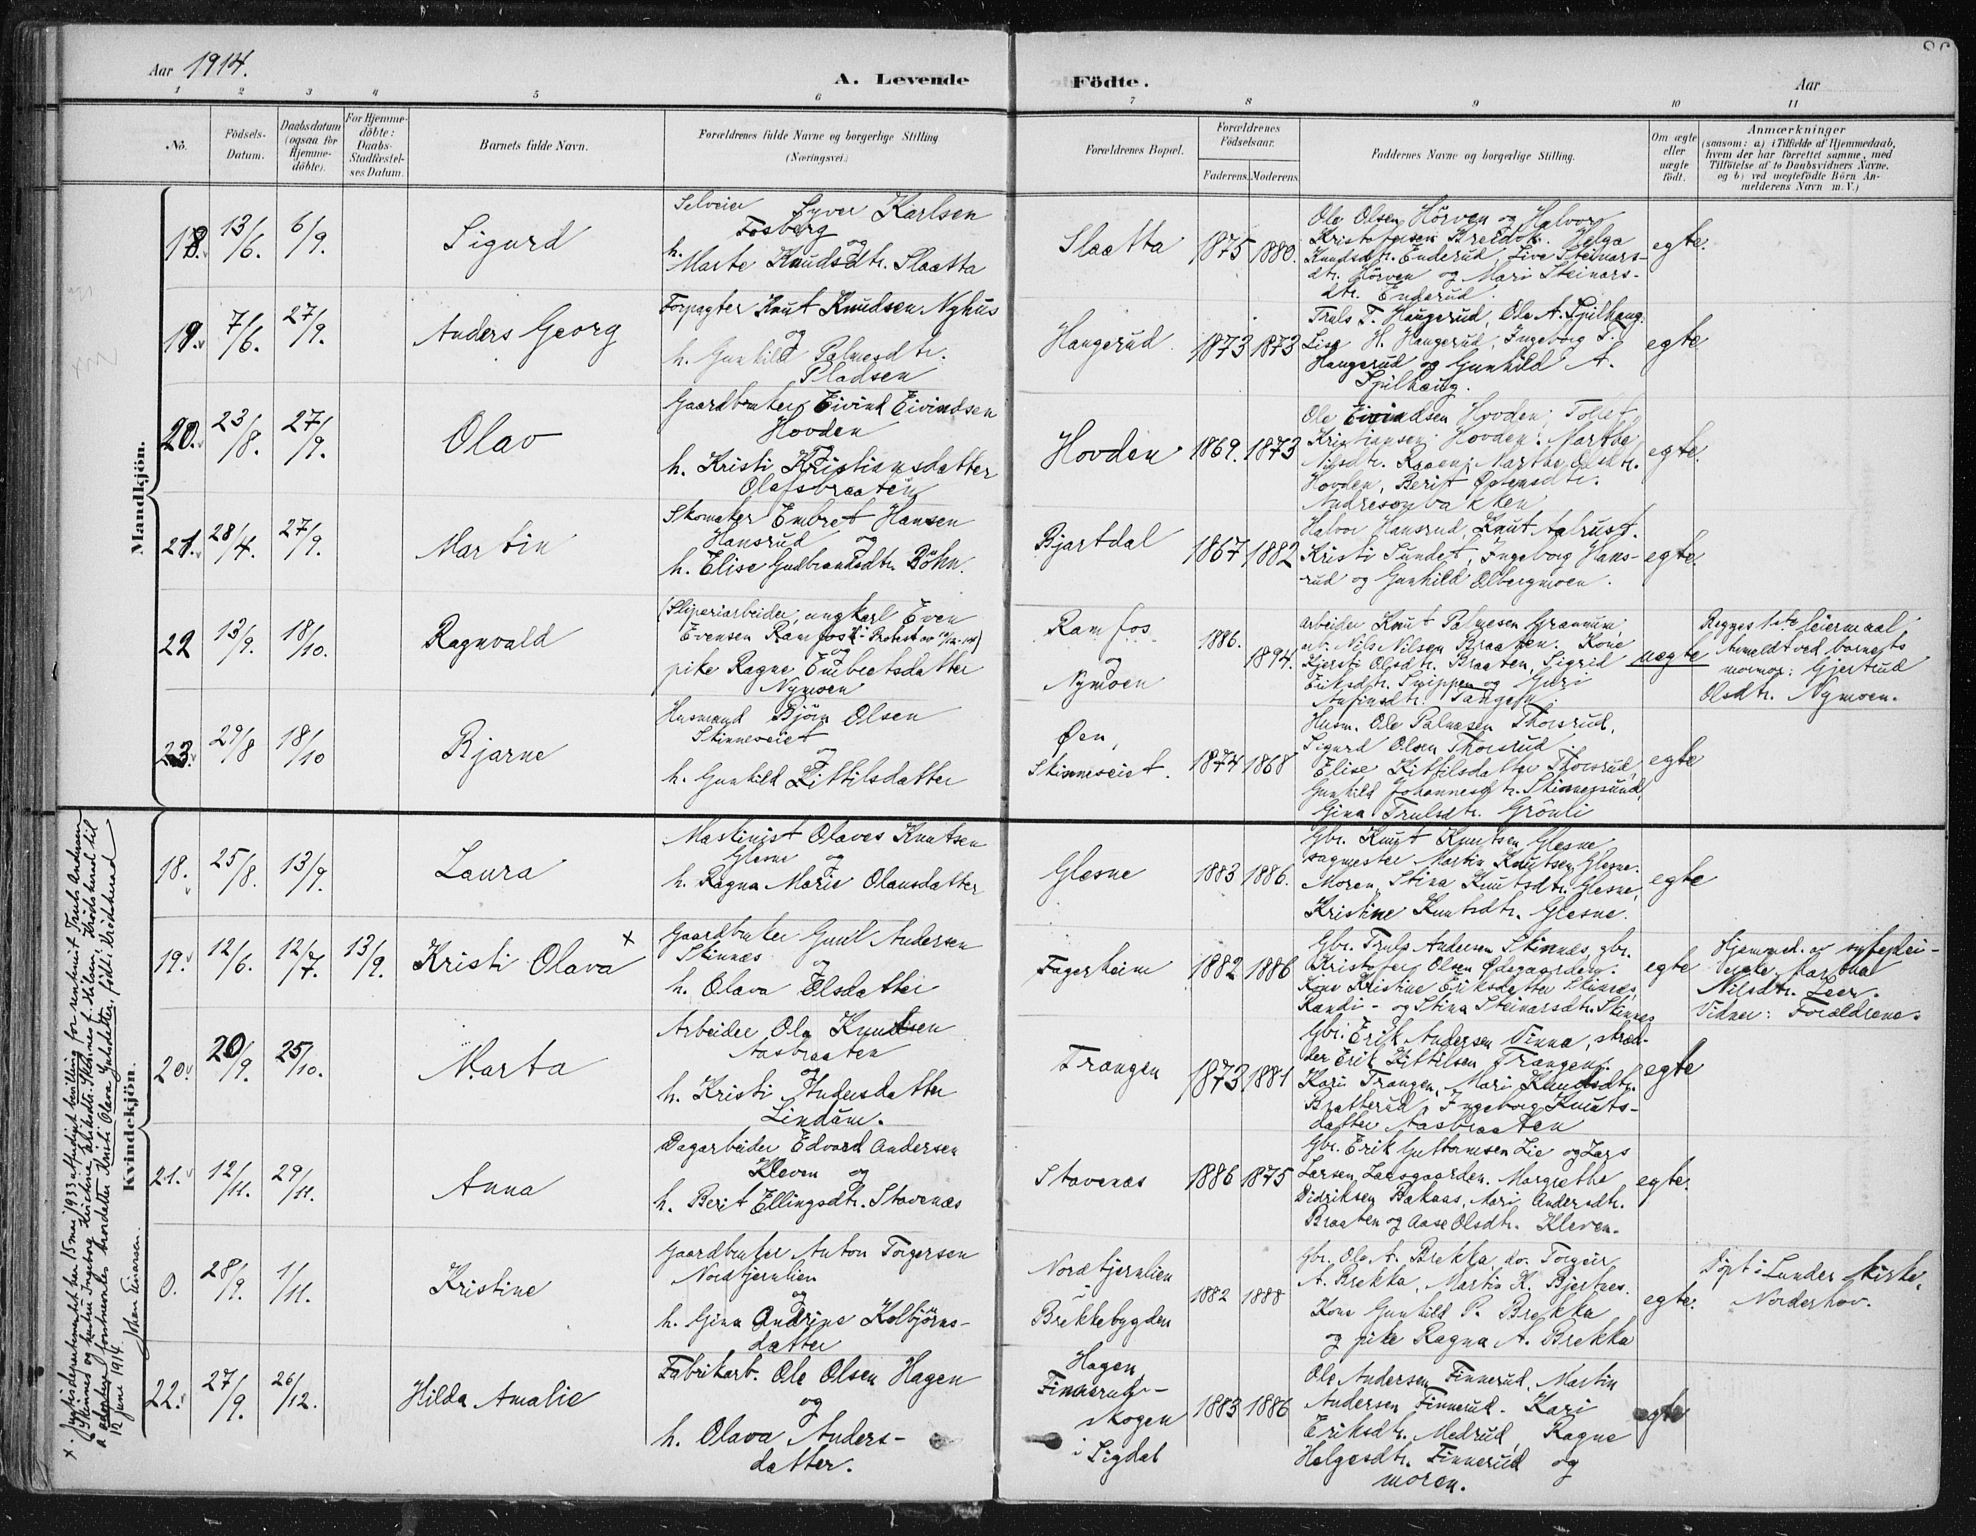 Aar 1914.
A. Levende
Födte.
Aar
1
2
3
4
5
6
7
8
9
10
11
No.
Födsels-
Datum.
Daabsdatum
(ogsaa for
Hjemme-
döbte).
For Hjemme-
döbte:
Daabs-
Stadfæstel-
ses Datum.
Barnets fulde Navn.
Forældrenes fulde Navne og borgerlige Stilling
(Næringsvei.)
Forældrenes Bopæl.
Forældrenes
Födselsaar.
Faderens. Moderens.
Faddernes Navne og borgerlige Stilling.
Om ægte
eller
uægte
födt.
Anmærkninger
(saasom: a) i Tilfælde af Hjemmedaab,
hvem der har forrettet samme, med
Tilföielse af to Daabsvidners Navne.
og b) ved uægtefödte Börn An-
melderens Navn m. V.)
Mandkjön.
18.
13/6.
6/9.
Sigurd
Selveier Syver Karlsen
Fosberg
og
h. Marte Knudsdtr. Slaatta
Slaatta
1875
1880.
Ole Olsen Hörven og Halvor
Kristofersen Breidok. Helga
Knudsdtr. Enderud, Live Steinars-
dtr. Hörven og Mari Steinars-
dtr. Enderud.
egte.
19.
7/6.
27/9.
Anders Georg
Forpagter Knut Knudsen Nyhus
og
h. Gunhild Palmesdtr.
Pladsen
Haugerud.
1873
1873
Truls T. Haugerud, Ole A. Spilhaug.
Lise H. Haugerud, Ingeborg T.
Haugerud og Gunhild A.
Spilhaug.
egte
20.
23/8.
27/9.
Olav
Gaardbruker Eivind Eivindsen
Hovden
og
h. Kristi Kristiansdatter
Olafsbraaten
Hovden
1869.
1873
Ole Eivindsen Hovden, Tollef
Kristiansen Hovden. Marthe
Nilsdtr. Raaen, Marthe Olsdtr.
Hovden, Berit Östensdtr.
Andresonbakken
egte.
21.
28/4.
27/9.
Martin
Skomaker Embret Hansen
Hansrud og
h. Elise Gudbrandsdtr. Böhn.
Bjartdal
1867
1882
Halvor Hansrud, Knut Aalrust.
Kristi Sundet, Ingeborg Hans-
rud og Gunhild Olbergmoen.
egte.
22
13/9.
18/10.
Ragnvald
(Sliperiarbeider, ungkarl Even
Evensen Ramfos
og
pike Ragne Embretsdatter
Nymoen
Ramfos.
og
Nymoen
1886.
1894.
arbeider Knut Palmesen Grannum,
arb. Nils Nilsen Braaten. Kone
Kjersti Olsdtr. Braaten, Sigrid
Eriksdtr. Snippen og Guri
Anfinsdtr. Tangen.
uegte
Begges 1ste leiermaal
Anmeldt ved barnets
mormor: Gjertrud
Olsdtr. Nymoen.
23.
29/8
18/10
Bjarne
Husmand Björn Olsen
Skinneseiet
og
h. Gunhild Kittilsdatter
Öen,
Skinneseiet.
1874
1868
Husm. Ole Palmesen Thorsrud,
Sigurd Olsen Thorsrud
Elise Kittilsdatter Thorsrud,
Gunhild Johannesdtr. Skinnessund,
Gina Trulsdtr. Grönli
egte
Kvindekjön.
18.
25/8.
13/9.
Laura
Maskinist Olaves Knutsen
Glesne og
h. Ragna Marie Olausdatter
Glesne
1883
1886.
Gbr. Knut Knutsen Glesne
sagmester Martin Knutsen Glesne.
Moren, Stina Knutsdtr. Glesne,
Kristine Knutsdtr. Glesne.
egte
19.
12/6.
12/7.
13/9.
Kristi Olava x
Gaardbruker Gul Andersen
Skinnes
og
h. Olava Olsdatter
Fagerheim
1882
1886
Gbr. Truls Andersen Skinnes, gbr.
Kristofer Olsen Ödegaarden.
Kone Kristine Eriksdatter Skinnes,
Randi - og Stina Steinarsdtr. Skinnes
egte
Hjemmed. av sykeplei-
erske Martha
Nilsdtr. Leer.
Vidner: Forældrene.
20.
20/9.
25/10.
Marta
Arbeider Ole Knudsen
Aasbraaten
og
h. Kristi Andersdatter
Lindum.
Trangen
1873
1881
Gbr. Erik Andersen Vinna, skræd-
der Erik Kittilsen Trangen.
Kari Trangen, Mari Knudsdtr.
Bratterud, Ingeborg Knuts-
datter Aasbraaten
egte
21.
12/11.
29/11.
Anna
Dagarbeider Edvard Andersen
Kleven og
h. Berit Ellingsdtr. Stavenæs
Stavenæs
1886
1875
Gbr. Erik Guttormsen Lie og Lars
Larsen Laasgaarden. Margrethe
Didriksen Bakaas, Mari Andersdtr.
Braaten og Aase Olsdtr. Kleven.
egte.
0.
28/9.
1/11.
Kristine
Gaardbruker Anton Torgersen
Nordtjernlien
og
h. Gina Andrine Kolbjörns-
datter
Nordtjernlien
Brekkebygden
1882
1888
Gbr. Ole A. Brekka, do. Torgeir
A. Brekka, Martin K. Bjertnes.
Kone Gunhild P. Brekka
og pike Ragna A. Brekka
egte.
Döpt i Lunder kirke,
Norderhov.
22.
27/9.
26/12.
Hilda Amalie
Fabrikarb. Ole Olsen Hagen
og
h. Olava Anders-
datter.
Hagen
Finnerud-
skogen
i Sigdal
1883
1886
Ole Andersen Finnerud, Martin
Andersen Finnerud. Kari
Eriksdtr. Medrud, Ragne
Helgesdtr. Finnerud og
moren.
egte
x. Justisdepartementet har 15 mai 1933 utferdiget bevilling for rentenist Truls Andersen
Skinnes og hustru Ingeborg Kirstine Eriksdtr. Skinnes f. Nilsen, Krödsherad til
å adoptere förstnevntes brordatter Kristi Olava Gulsdatter, född i Krödsherad
12 juni 1914. Johan Einarsen.